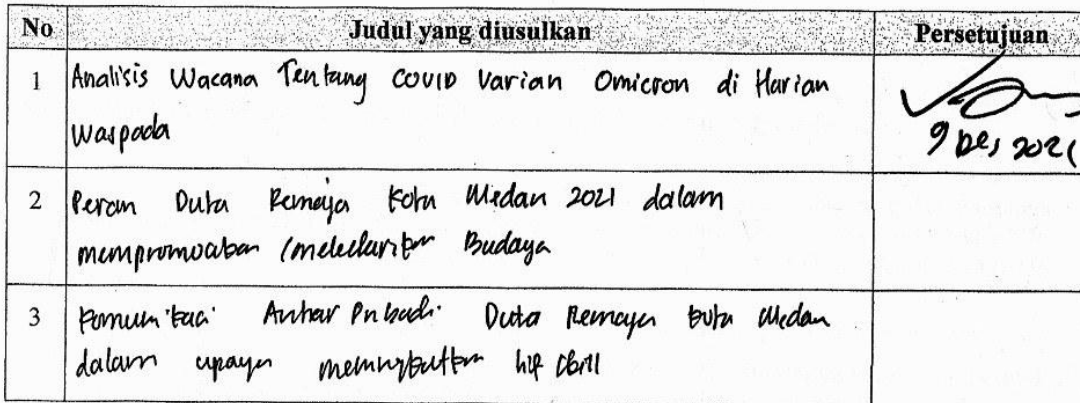 No Judul yang diusulkan Persetujuan
1 Analisis Wacana Tentang COVID Varian Omicron di Harian
Waspada
9 Des 2021
2 Peran Duta Remaja Kota Medan 2021 dalam
mempromosikan /melestarikan Budaya
3 Komunikasi Antar Pribadi Duta Remaja Kota Medan
dalam upaya meningkatkan